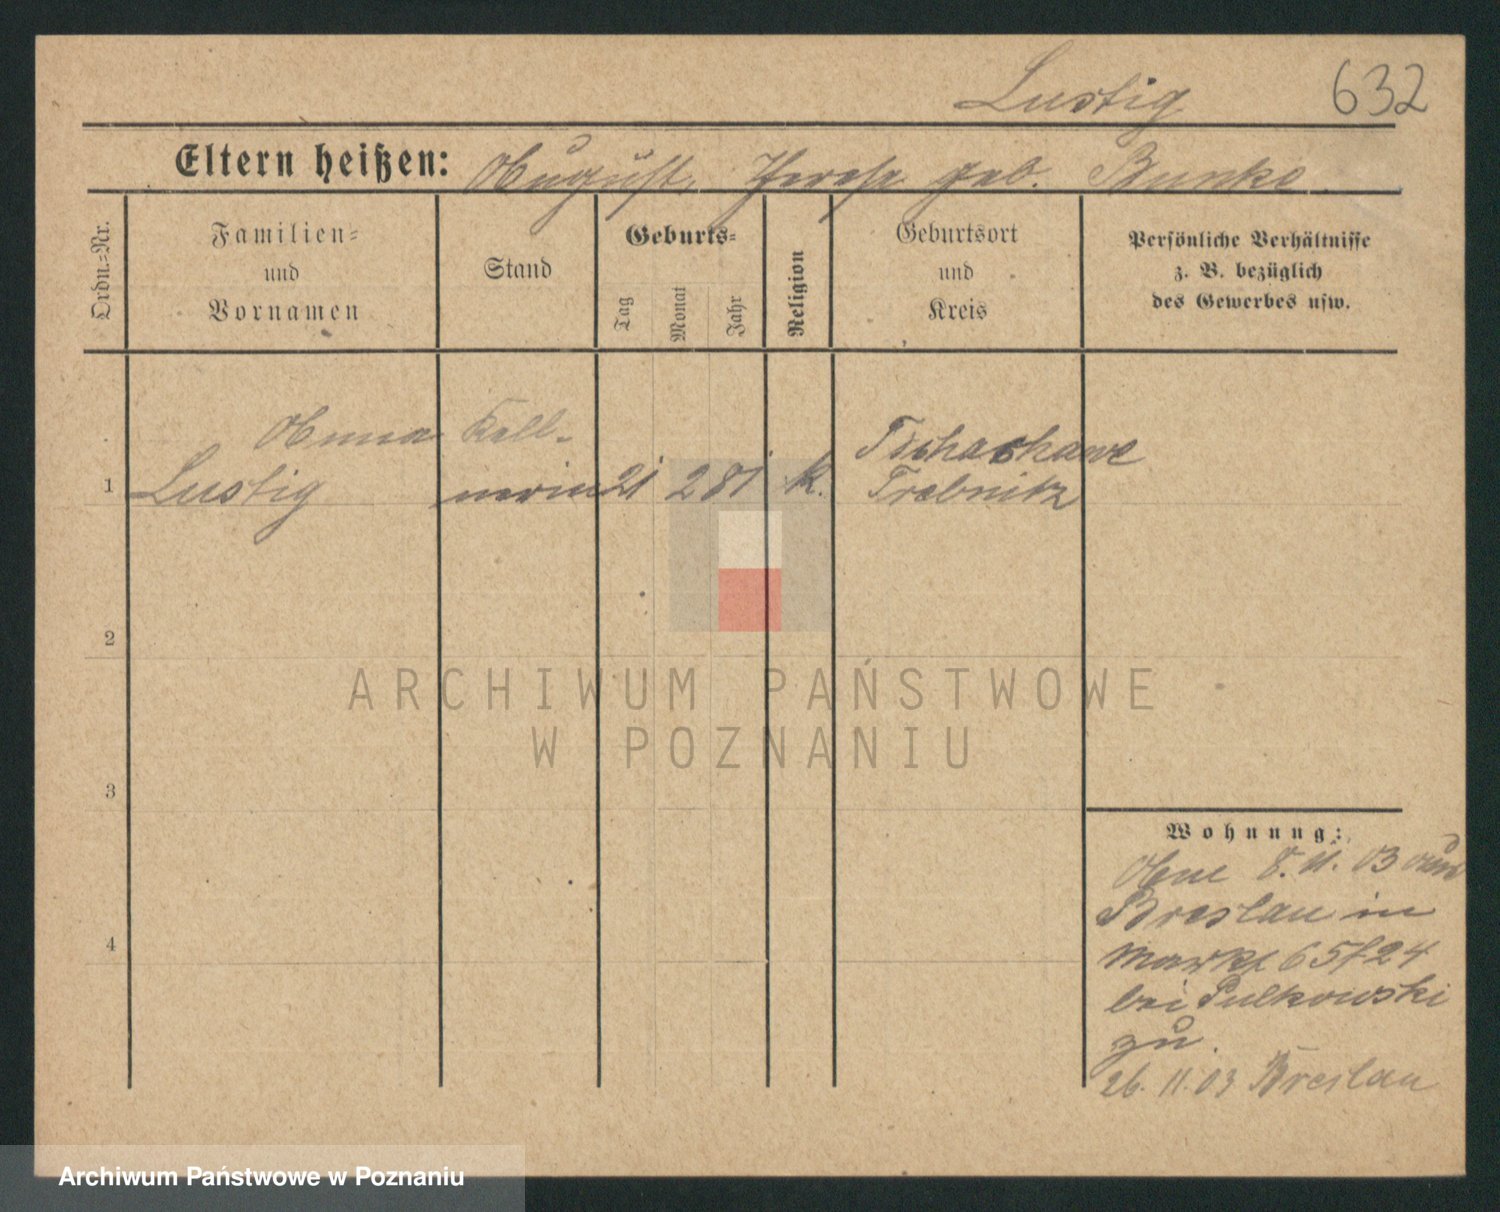 Lustig 632
Eltern heißen: August, Therese geb. Bunke
Ordn.=Nr.
Familien=
und
Vornamen
Stand
Geburts=
Tag
Monat
Jahr
Religion
Geburtsort
und
Kreis
Persönliche Verhältnisse
z. B. bezüglich
des Gewerbes usw.
Anna Kell-
1 Lustig nerin 21 2 81 k. Tschachawe
Trebnitz
2
3
4
Wohnung:
8. 11. 03 von
Breslau in
Markt 65/24
bei Pulkowski
zu.
26. 11. 03 Breslau
ARCHIWUM PAŃSTWOWE
W POZNANIU
Archiwum Państwowe w Poznaniu